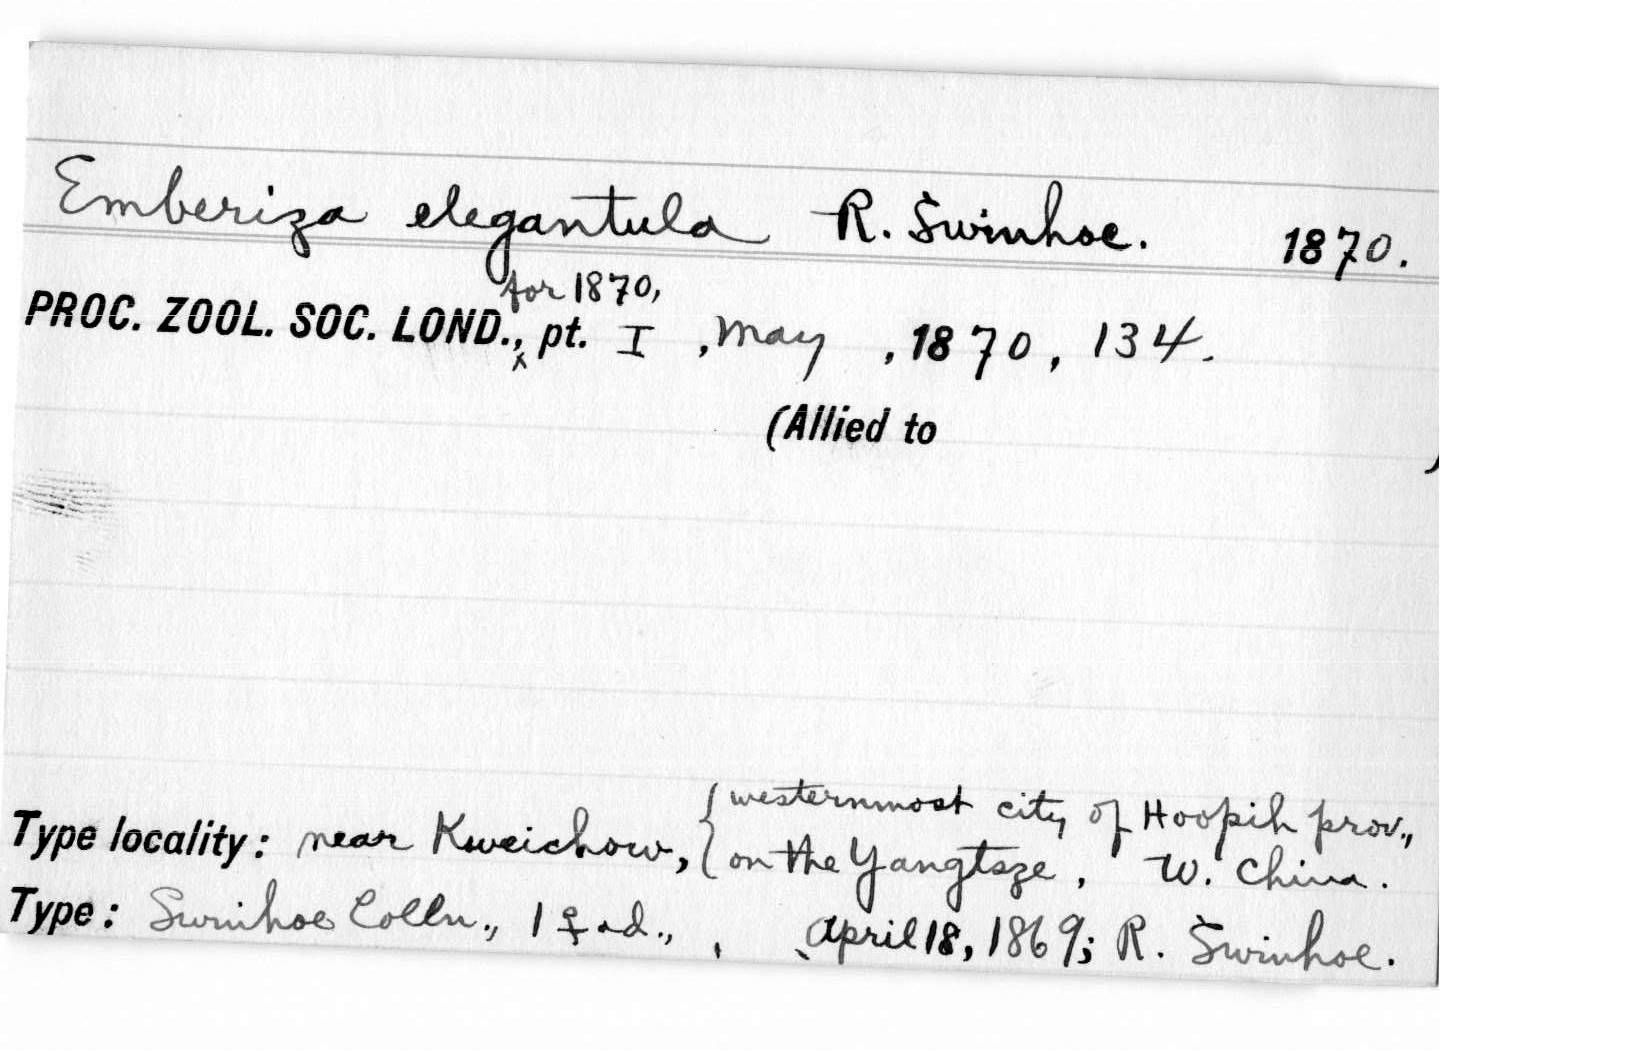 Emberiza elegantula R. Swinhoe. 1870.
for 1870,
PROC. ZOOL. SOC. LOND., pt. I , May , 1870, 134.
(Allied to )
westernmost city of Hoopih prov.,
Type locality: near Kweichow, { on the Yangtsze, W. China.
Type: Swinhoe Colln., 1 ♀ ad., , April 18, 1869; R. Swinhoe.